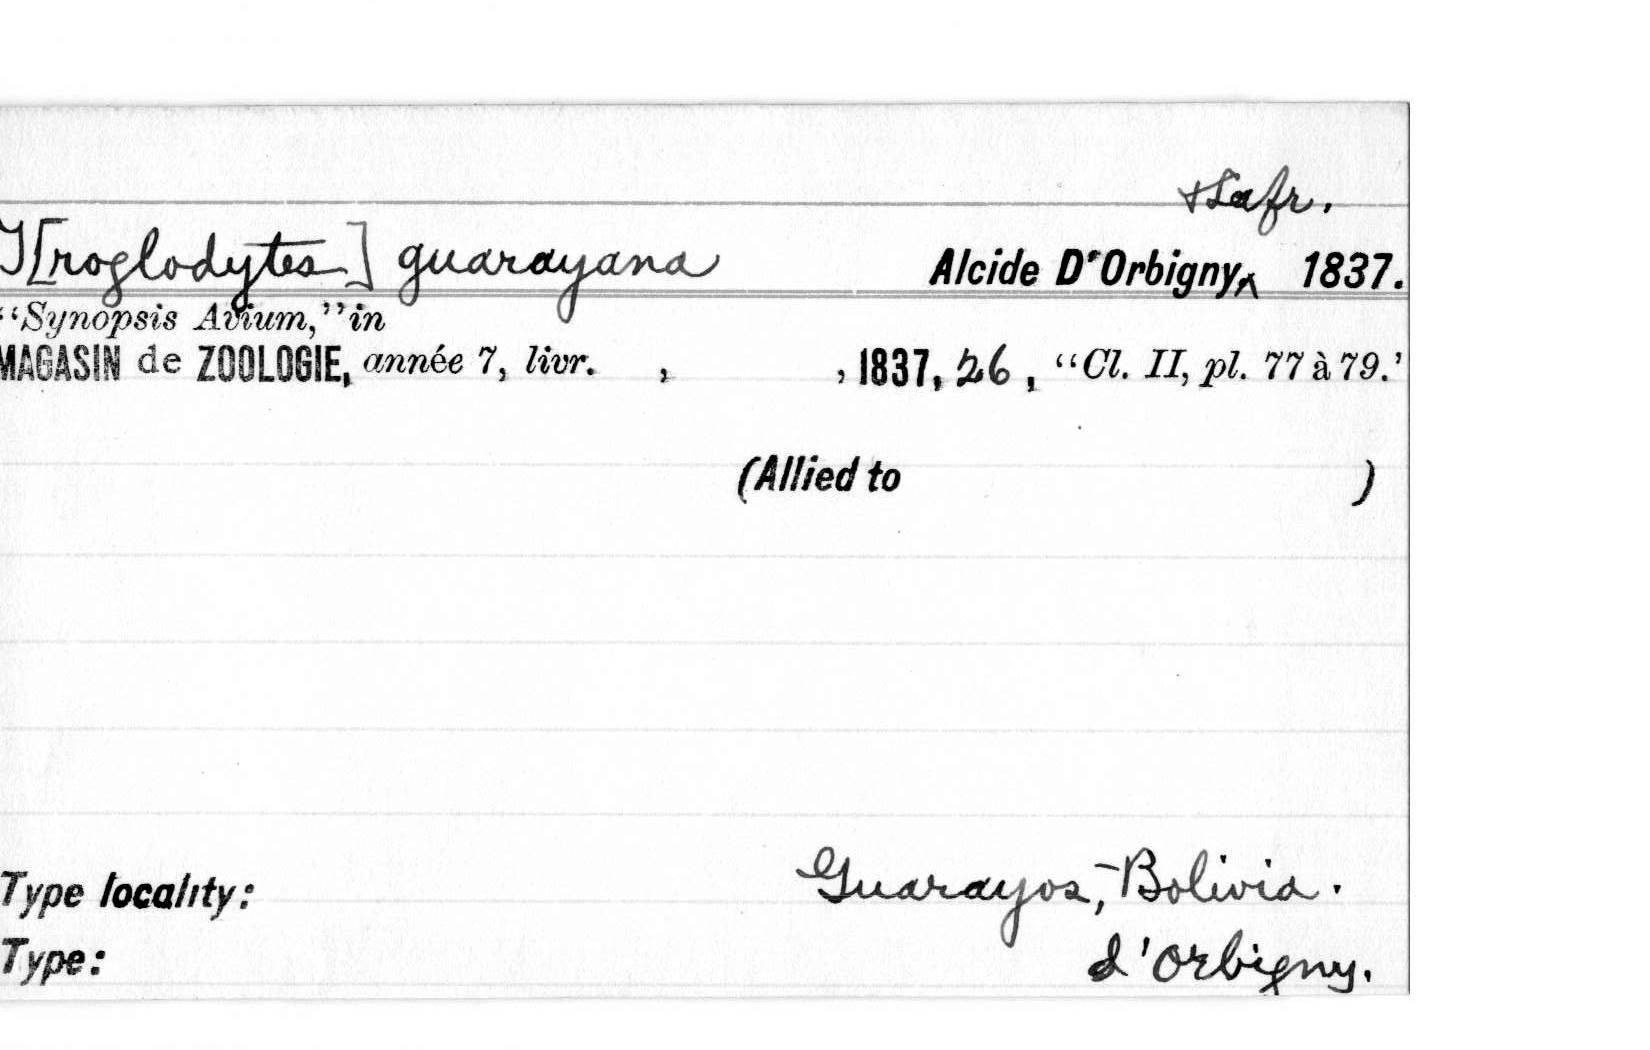 +Lafr.
T[roglodytes] guarayana Alcide D'Orbigny^ 1837.
"Synopsis Avium," in
MAGASIN de ZOOLOGIE, année 7, livr. , , 1837, 26, "Cl. II, pl. 77 à 79.'
(Allied to )
Type locality: Guarayos, Bolivia.
Type: d'Orbigny.